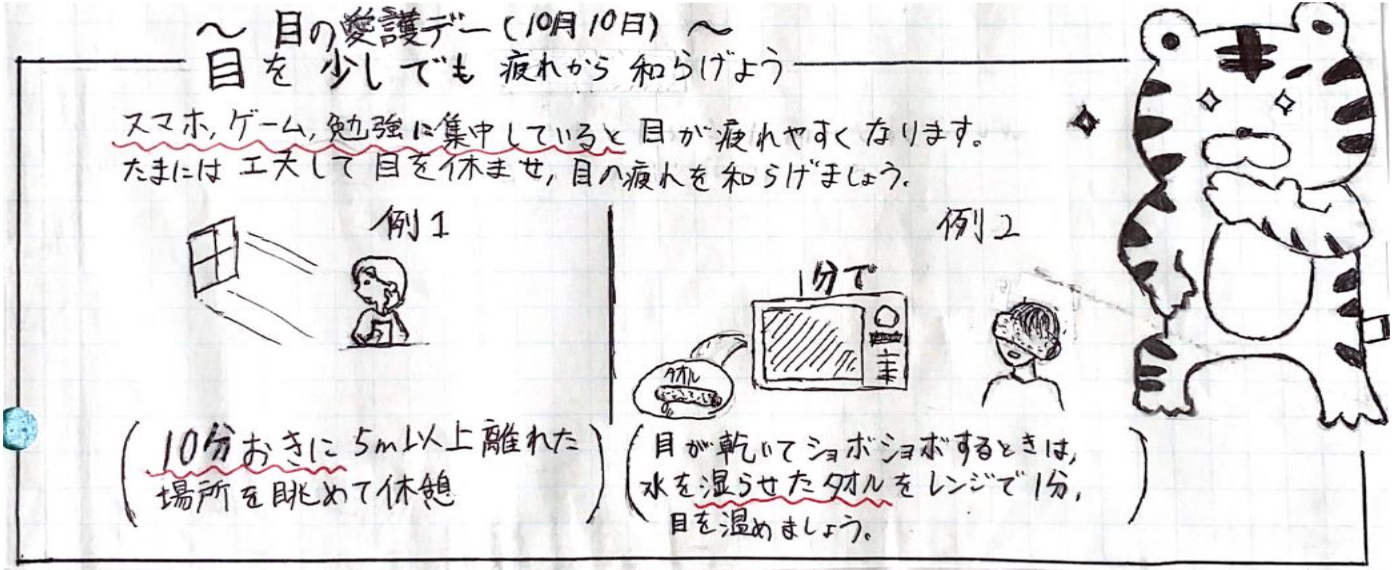 ～ 目の愛護デー(10月10日) ～
目を 少しでも 疲れから 和らげよう
スマホ,ゲーム,勉強に集中していると 目が疲れやすくなります。
たまには 工夫して 目を休ませ,目の疲れを和らげましょう。
例1
10分おきに 5m以上離れた
場所を眺めて休憩
例2
1分で
タオル
目が乾いてショボショボするときは,
水を湿らせたタオルをレンジで1分,
目を温めましょう。